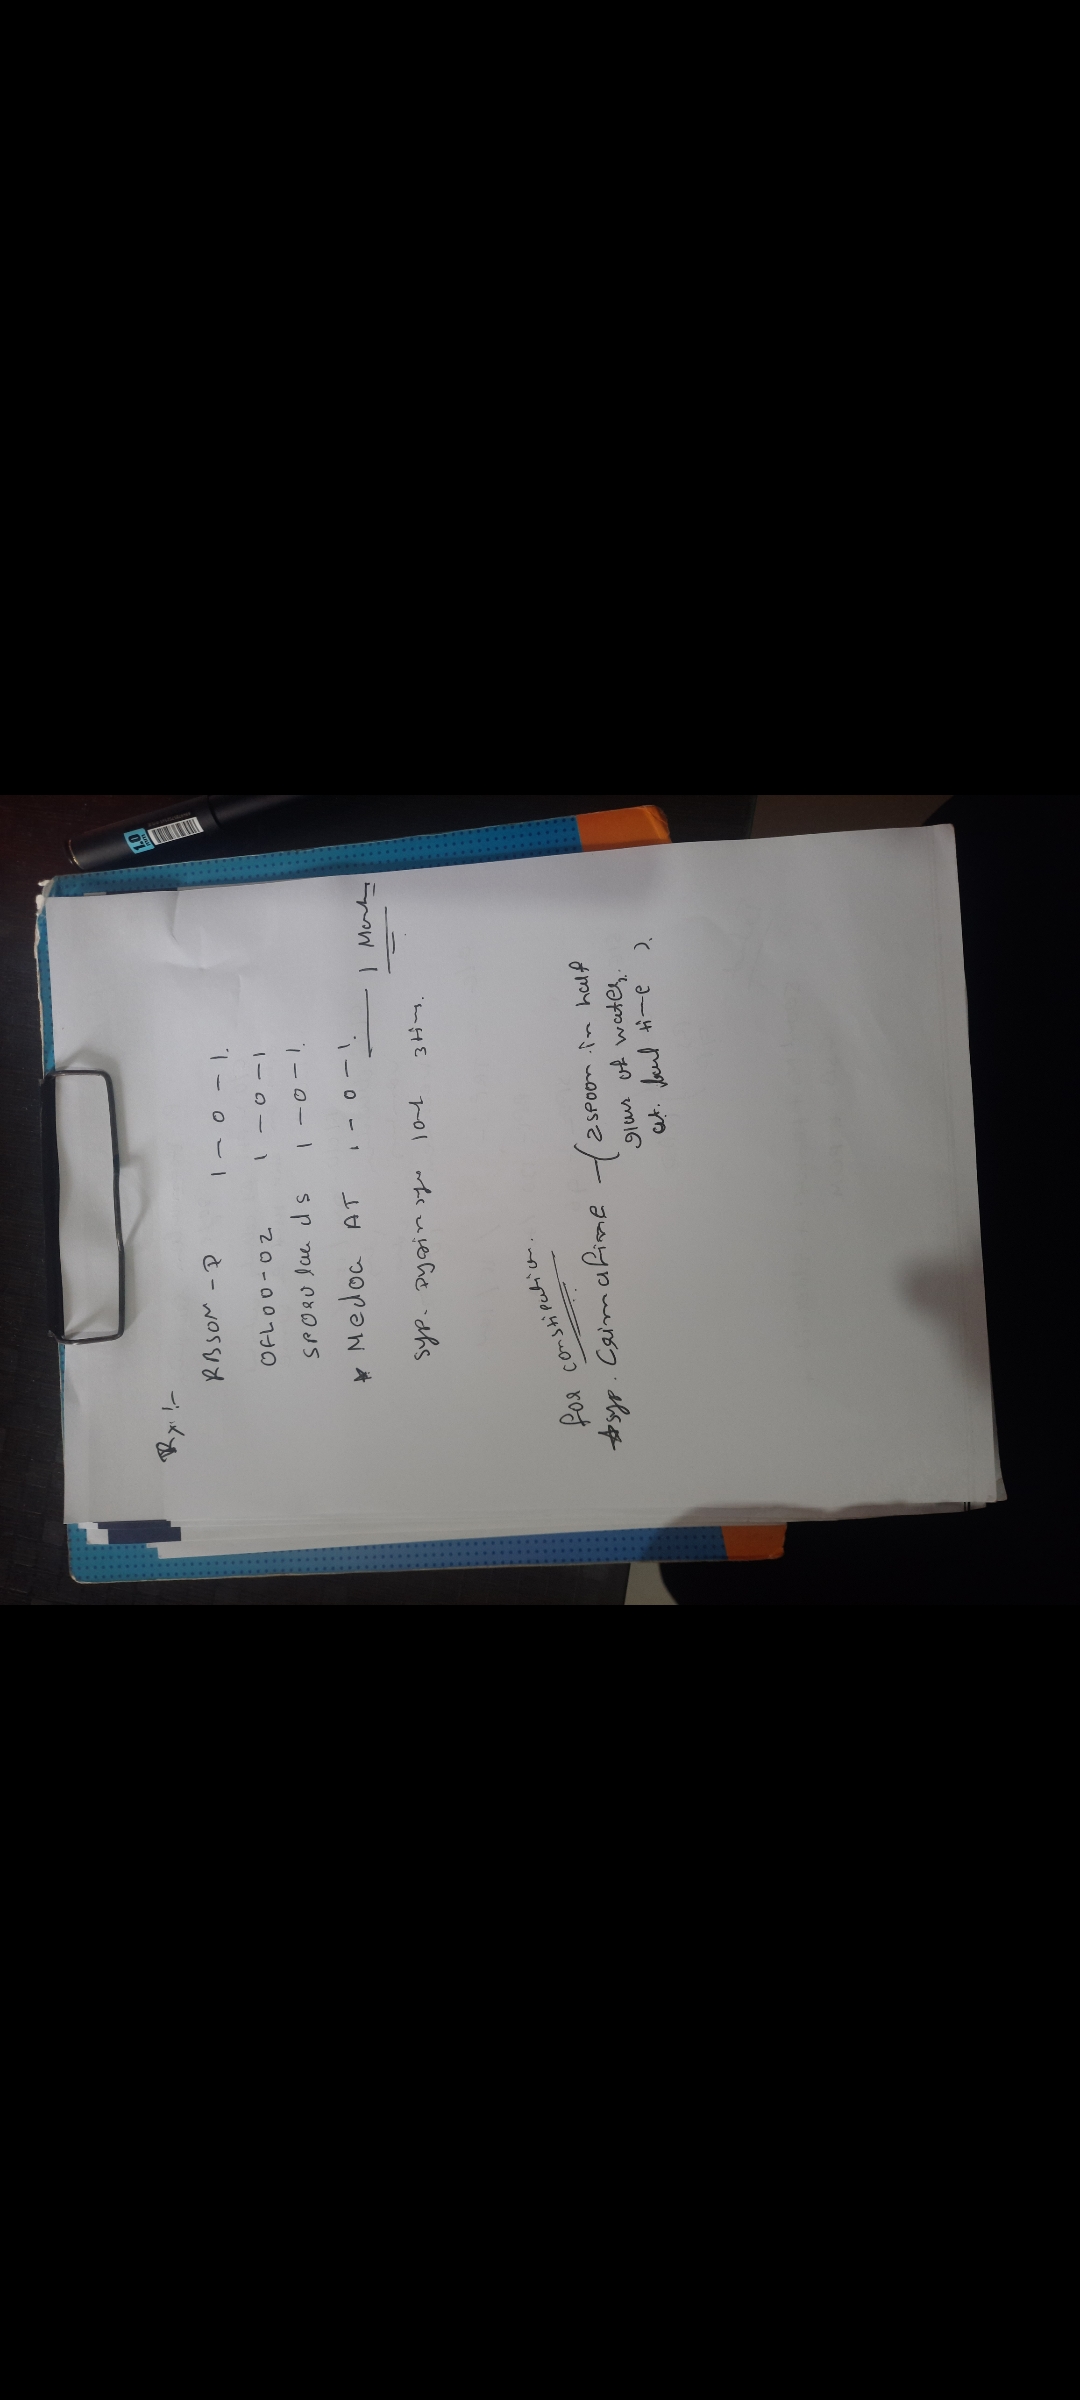 Rx:-
RBSON-D 1-0-1.
OFLOO-OZ 1-0-1
SPOROLAC DS 1-0-1.
* MedOC AT 1-0-1. 1 Month
Syp. 10ml 3times.
for constipation.
* Syp. Crimafine - (2 spoon in half
glass of water.
at. bed time).
1.0